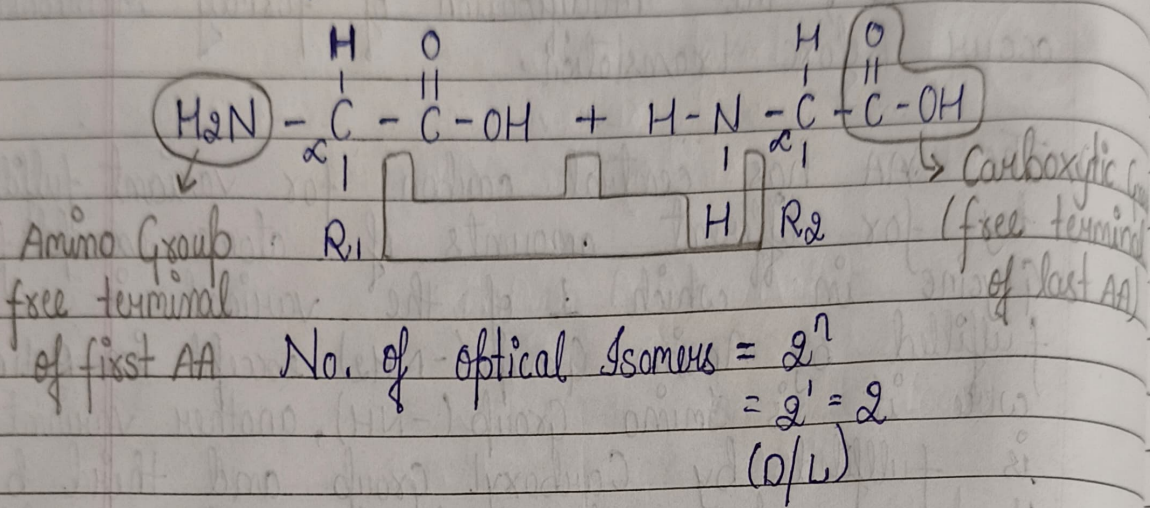 H O H O
H2N - C - C - OH + H - N - C - C - OH
α α
R1 H R2
Amino Group
free terminal
of first AA
Carboxylic
(free terminal
of last AA)
No. of optical Isomers = 2ⁿ
= 2¹ = 2
(D/L)